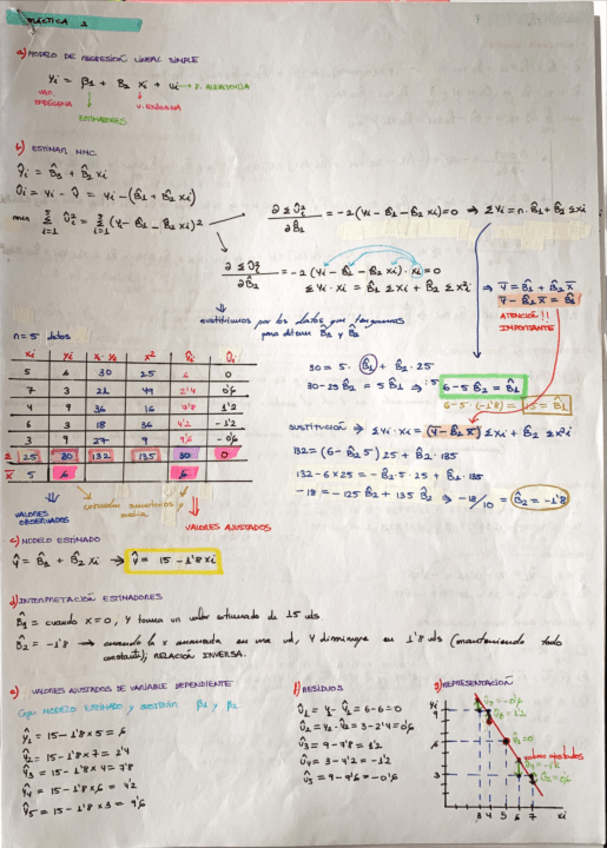 PRÁCTICA 2
a) MODELO DE REGRESIÓN LINEAL SIMPLE
yi = β1 + β2 xi + ui → P. ALEATORIA
VAR. ENDÓGENA
V. EXÓGENA
ESTIMADORES
b) ESTIMAR MNC.
Ŷi = B̂1 + B̂2 xi
Ûi = yi - Ŷ = yi - (B̂1 + B̂2 xi)
min Σ Ûi² = Σ (Y - B̂1 - B̂2 xi)²
∂ΣÛi² / ∂B̂1 = -2 (Yi - B̂1 - B̂2 xi) = 0 ⇒ ΣYi = n · B̂1 + B̂2 Σxi
∂ΣÛi² / ∂B̂2 = -2 (Yi - B̂1 - B̂2 xi) · xi = 0
ΣYi · xi = B̂1 Σxi + B̂2 Σx²i
⇒ Y̅ = B̂1 + B̂2 X̅
Y̅ - B̂2 X̅ = B̂1
ATENCIÓN!!
IMPORTANTE
sustituimos por los datos que tengamos
para obtener B̂1 y B̂2
n = 5 datos
xi yi xi·yi x² Ŷi Ûi
5 6 30 25 6 0
7 3 21 49 2'4 0'6
4 9 36 16 7'8 1'2
6 3 18 36 4'2 -1'2
3 9 27 9 9'6 -0'6
Σ 25 30 132 135 30 0
X̅ 5 6 6
VALORES OBSERVADOS
coinciden sumatorios y media
VALORES AJUSTADOS
30 = 5 · B̂1 + B̂2 · 25
30 - 25 B̂2 = 5 B̂1 ⇒ :5 6 - 5 B̂2 = B̂1
6 - 5 · (-1'8) = 15 = B̂1
SUSTITUCIÓN → ΣYi · xi = (Y̅ - B̂2 X̅) Σxi + B̂2 Σx²i
132 = (6 - B̂2 5) 25 + B̂2 · 135
132 - 6 × 25 = - B̂2 · 5 · 25 + B̂2 · 135
-18 = -125 B̂2 + 135 B̂2 → -18/10 = B̂2 = -1'8
c) MODELO ESTIMADO
Ŷ = B̂1 + B̂2 xi → Ŷ = 15 - 1'8 xi
d) INTERPRETACIÓN ESTIMADORES
B̂1 = cuando x = 0, Y toma un valor estimado de 15 uds.
B̂2 = -1'8 → cuando la x aumenta en una ud, Y disminuye en 1'8 uds (manteniendo todo
constante); RELACIÓN INVERSA.
e) VALORES AJUSTADOS DE VARIABLE DEPENDIENTE
Cojo MODELO ESTIMADO y sustituyo β1 y β2
Ŷ1 = 15 - 1'8 × 5 = 6
Ŷ2 = 15 - 1'8 × 7 = 2'4
Ŷ3 = 15 - 1'8 × 4 = 7'8
Ŷ4 = 15 - 1'8 × 6 = 4'2
Ŷ5 = 15 - 1'8 × 3 = 9'6
f) RESIDUOS
Û1 = Y1 - Ŷ1 = 6 - 6 = 0
Û2 = Y2 - Ŷ2 = 3 - 2'4 = 0'6
Û3 = 9 - 7'8 = 1'2
Û4 = 3 - 4'2 = -1'2
Û5 = 9 - 9'6 = -0'6
g) REPRESENTACIÓN
Yi
9
6
3
3 4 5 6 7
xi
valores ajustados